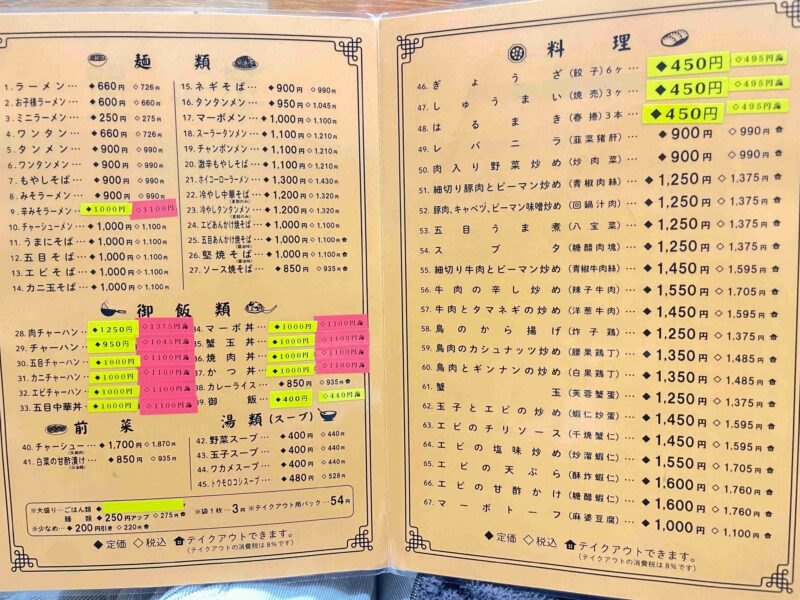 麺類
1.ラーメン… ◆660円 ◇726円
2.お子様ラーメン… ◆600円 ◇660円
3.ミニラーメン… ◆250円 ◇275円
4.ワンタン… ◆660円 ◇726円
5.タンメン… ◆900円 ◇990円
6.ワンタンメン… ◆900円 ◇990円
7.もやしそば… ◆900円 ◇990円
8.みそラーメン… ◆900円 ◇990円
9.辛みそラーメン… ◆1000円 ◇1100円
10.チャーシューメン… ◆1,000円 ◇1,100円
11.うまにそば… ◆1,000円 ◇1,100円
12.五目そば… ◆1,000円 ◇1,100円
13.エビそば… ◆1,000円 ◇1,100円
14.カニ玉そば… ◆1,000円 ◇1,100円
15.ネギそば… ◆900円 ◇990円
16.タンタンメン… ◆950円 ◇1,045円
17.マーボメン… ◆1,000円 ◇1,100円
18.スーラータンメン… ◆1,100円 ◇1,210円
19.チャンポンメン… ◆1,100円 ◇1,210円
20.激辛もやしそば… ◆1,100円 ◇1,210円
21.ホイコーローラーメン… ◆1,300円 ◇1,430円
22.冷やし中華そば… ◆1,200円 ◇1,320円
23.冷やしタンタンメン… ◆1,200円 ◇1,320円
24.エビあんかけ焼そば… ◆1,000円 ◇1,100円
25.五目あんかけ焼そば… ◆1,000円 ◇1,100円
26.堅焼そば… ◆1,000円 ◇1,100円
27.ソース焼そば… ◆850円 ◇935円
御飯類
28.肉チャーハン… ◆1250円 ◇1375円
29.チャーハン… ◆950円 ◇1045円
30.五目チャーハン… ◆1000円 ◇1100円
31.カニチャーハン… ◆1000円 ◇1100円
32.エビチャーハン… ◆1000円 ◇1100円
33.五目中華丼… ◆1000円 ◇1100円
34.マーボ丼… ◆1000円 ◇1100円
35.蟹玉丼… ◆1000円 ◇1100円
36.焼肉丼… ◆1000円 ◇1100円
37.かつ丼… ◆1000円 ◇1100円
38.カレーライス… ◆850円 ◇935円
39.御飯… ◆400円 ◇440円
前菜
40.チャーシュー… ◆1,700円 ◇1,870円
41.白菜の甘酢漬け… ◆850円 ◇935円
湯類(スープ)
42.野菜スープ… ◆400円 ◇440円
43.玉子スープ… ◆400円 ◇440円
44.ワカメスープ… ◆400円 ◇440円
45.トウモロコシスープ… ◆480円 ◇528円
※大盛り…ごはん類
麺類 ◆250円アップ ◇275円
※少なめ… ◆200円引き ◇220円
※袋1枚…3円 ※テイクアウト用パック…54円
◆定価 ◇税込 テイクアウトできます。
(テイクアウトの消費税は8%です)
料理
46.ぎょうざ(餃子)6ヶ… ◆450円 ◇495円
47.しゅうまい(焼売)3ヶ… ◆450円 ◇495円
48.はるまき(春捲)3本… ◆450円 ◇495円
49.レバニラ(韮菜猪肝)… ◆900円 ◇990円
50.肉入り野菜炒め(炒肉菜)… ◆900円 ◇990円
51.細切り豚肉とピーマン炒め(青椒肉絲)… ◆1,250円 ◇1,375円
52.豚肉、キャベツ、ピーマン味噌炒め(回鍋汁肉)… ◆1,250円 ◇1,375円
53.五目うま煮(八宝菜)… ◆1,250円 ◇1,375円
54.スブタ(糖醋肉塊)… ◆1,250円 ◇1,375円
55.細切り牛肉とピーマン炒め(青椒牛肉絲)… ◆1,450円 ◇1,595円
56.牛肉の辛し炒め(辣子牛肉)… ◆1,550円 ◇1,705円
57.牛肉とタマネギの炒め(洋葱牛肉)… ◆1,450円 ◇1,595円
58.鳥のから揚げ(炸子鶏)… ◆1,250円 ◇1,375円
59.鳥肉のカシュナッツ炒め(腰果鶏丁)… ◆1,350円 ◇1,485円
60.鳥肉とギンナンの炒め(白果鶏丁)… ◆1,350円 ◇1,485円
61.蟹玉(芙蓉蟹蛋)… ◆1,250円 ◇1,375円
62.玉子とエビの炒め(蝦仁炒蛋)… ◆1,450円 ◇1,595円
63.エビのチリソース(干焼蟹仁)… ◆1,450円 ◇1,595円
64.エビの塩味炒め(炒溜蝦仁)… ◆1,550円 ◇1,705円
65.エビの天ぷら(酥炸蝦仁)… ◆1,600円 ◇1,760円
66.エビの甘酢かけ(糖醋蝦仁)… ◆1,600円 ◇1,760円
67.マーボトーフ(麻婆豆腐)… ◆1,000円 ◇1,100円
◆定価 ◇税込 テイクアウトできます。
(テイクアウトの消費税は8%です)